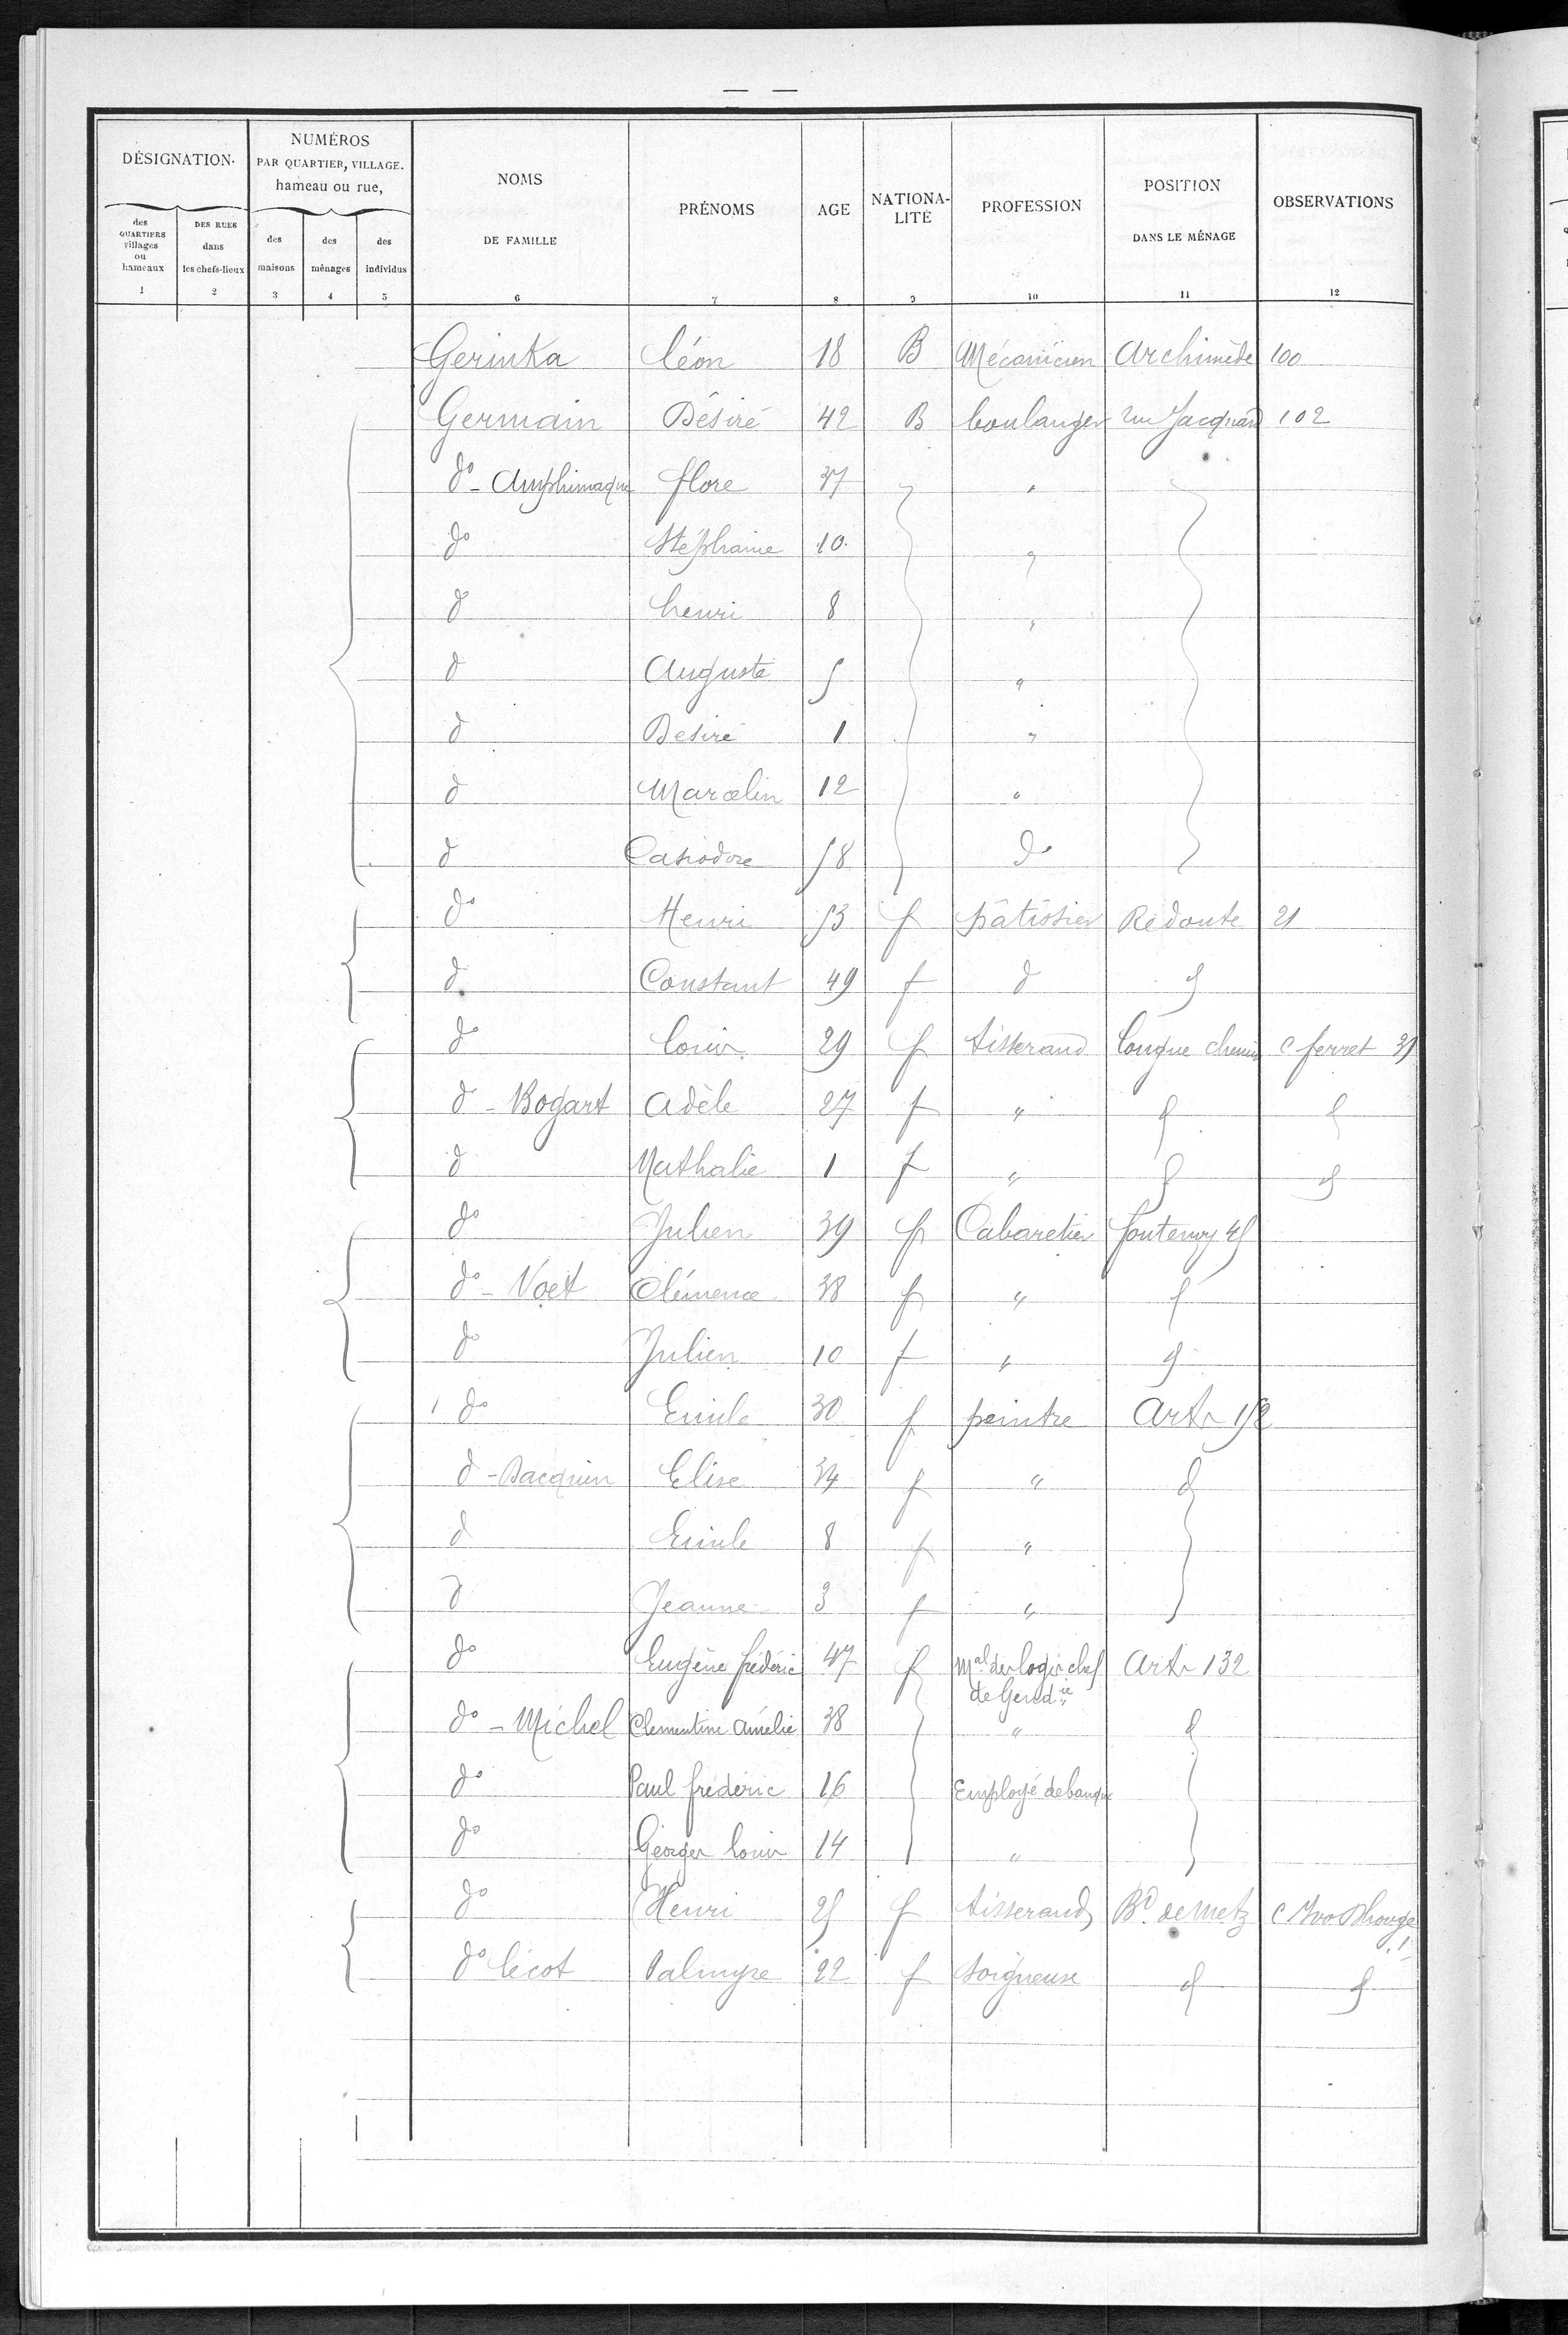 — —
DÉSIGNATION.
NUMÉROS PAR QUARTIER, VILLAGE. hameau ou rue,
NOMS DE FAMILLE
PRÉNOMS
AGE
NATIONA-LITÉ
PROFESSION
POSITION DANS LE MÉNAGE
OBSERVATIONS
des QUARTIERS villages ou hameaux
DES RUES dans les chefs-lieux
des maisons
des ménages
des individus
1 2 3 4 5 6 7 8 9 10 11 12
Gerinka Léon 18 B Mécanicien Archimède 100
Germain Désiré 42 B boulanger rue Jacquard 102
do - Amphimaque flore 37 "
do Stéphanie 10 "
do henri 8 "
d Auguste 5 "
d Desiré 1 "
d Marcelin 12 "
d Casiodore 58 do
do Henri 53 f pâtissier Redoute 21
d Constant 49 f d d
do Louis 29 f tisserand Longue chemise c ferret 31
d - Bogart Adèle 27 f " d d
d Nathalie 1 f " d d
do Julien 39 f Cabaretier fontenoy 45
do - Voet Clémence 38 f " d
do Julien 10 f " d
do Emile 30 f peintre Arts 152
d - Dacquin Elise 34 f " d
d Emile 8 f "
d Jeanne 3 f "
do Eugène frédéric 47 f Mal des logis chef Arts 132
de Gendie
do - Michel Clementine Amélie 38 " d
do Paul frédéric 16 Employé de banque
do Georges Louis 14 "
do Henri 25 f tisserand Bd de Metz c Ivo Dhouge
1
do Lécot Palmyre 22 f soigneuse d d